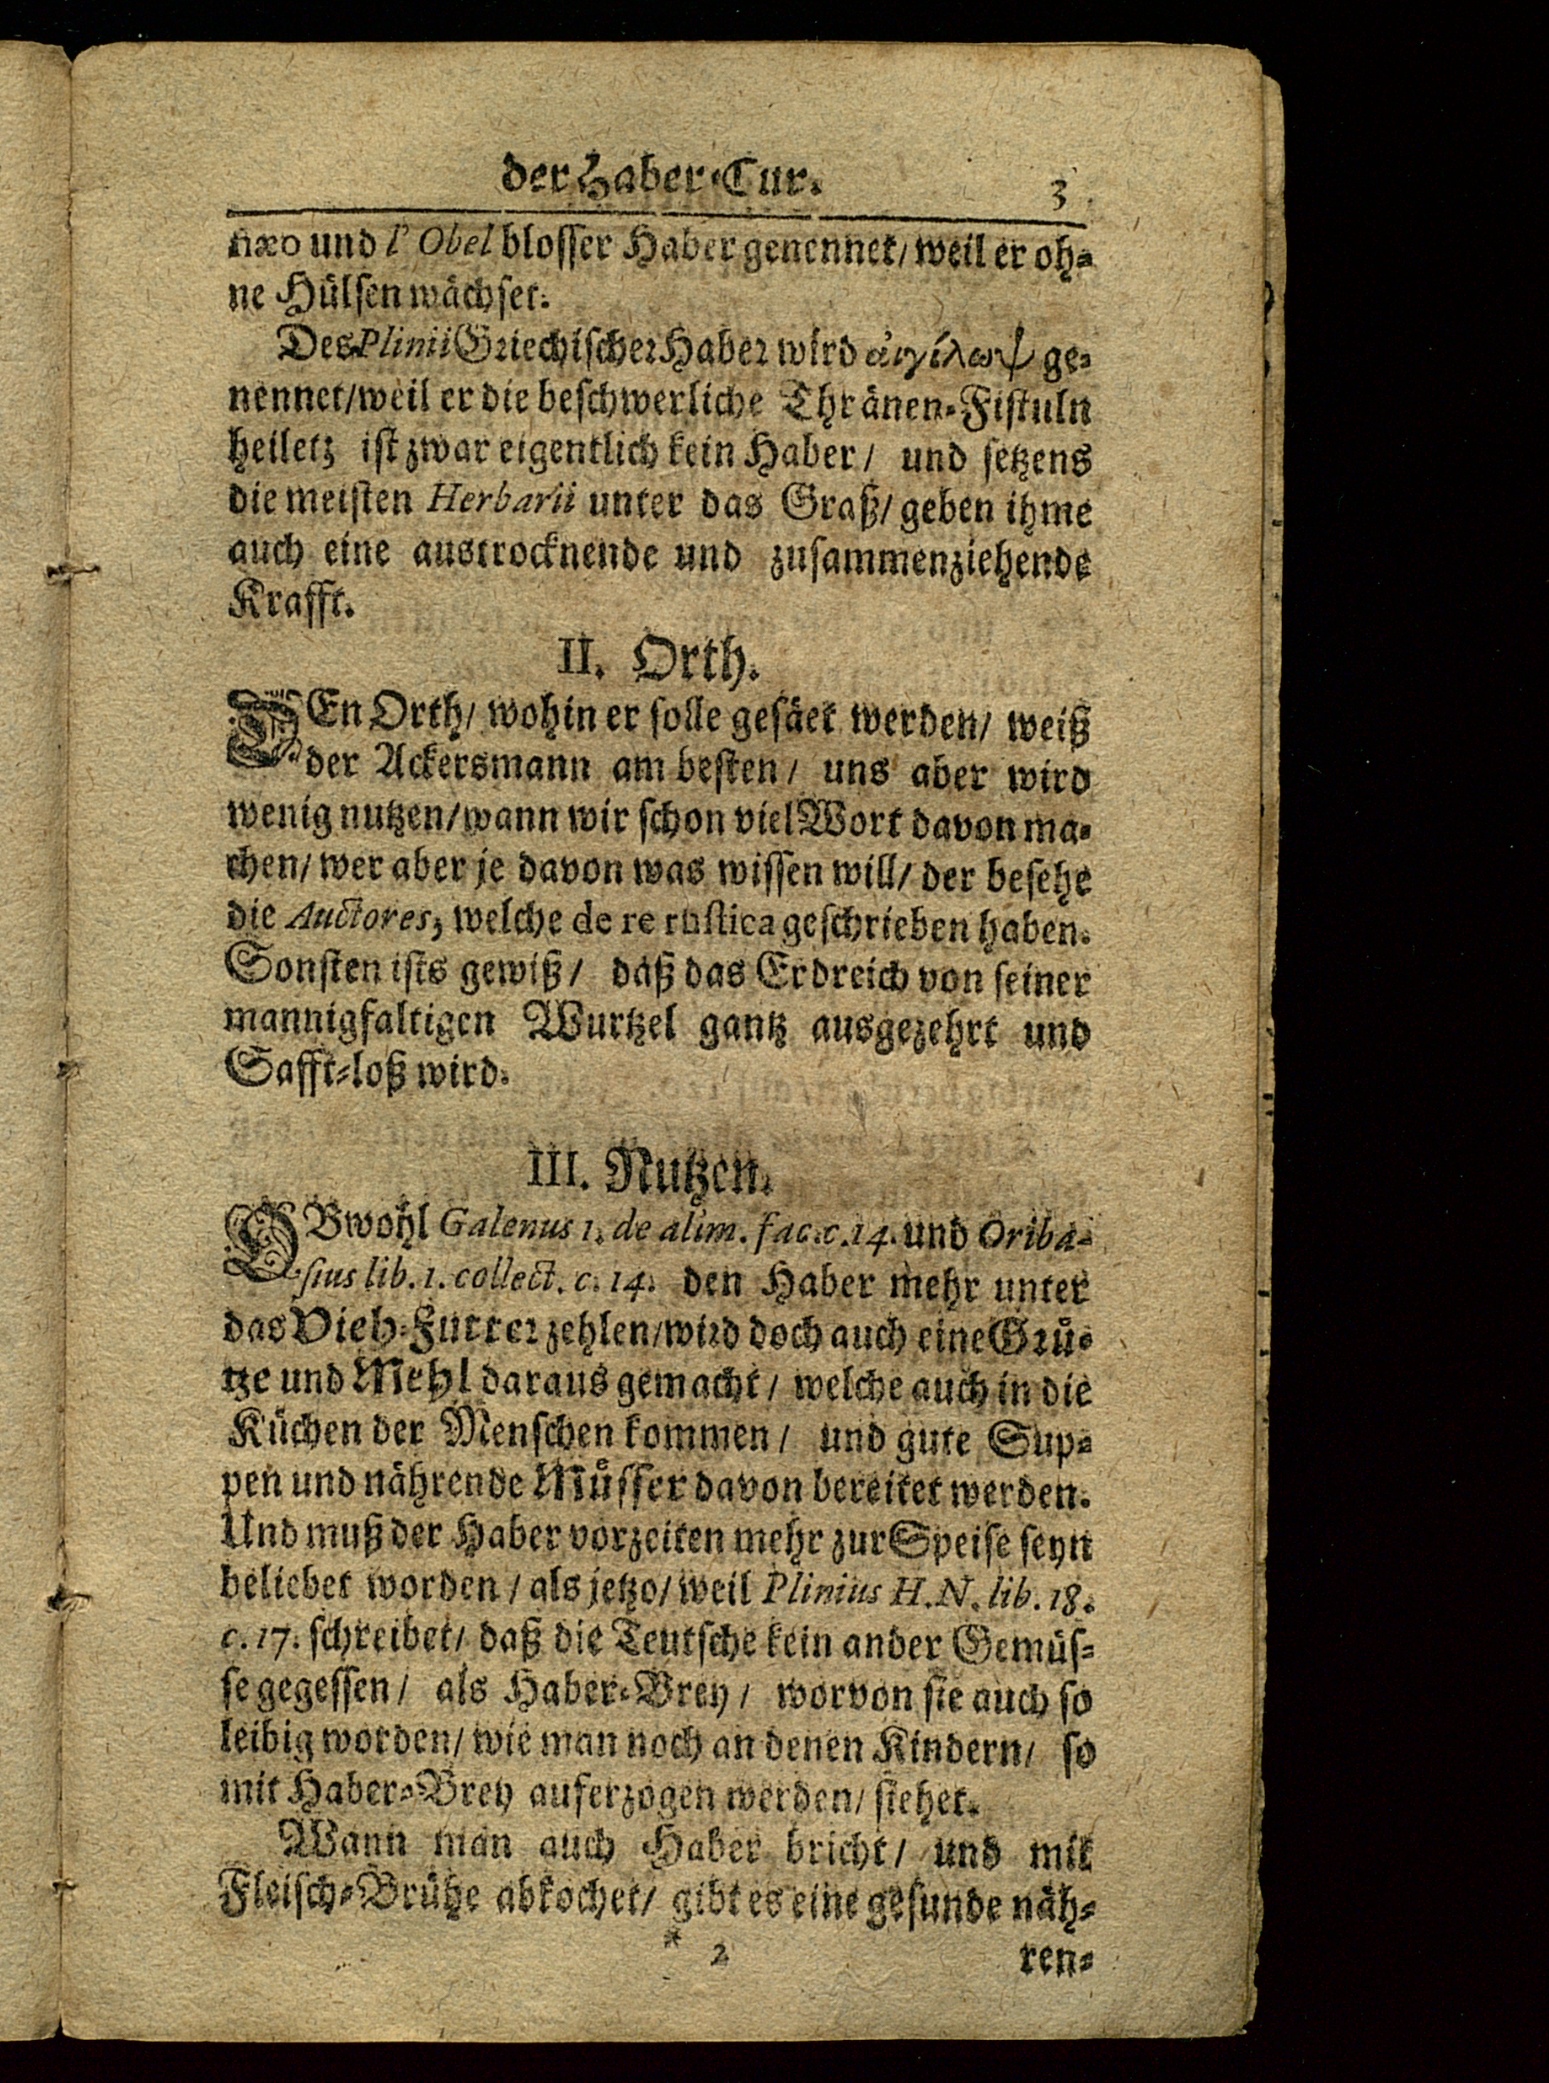 der Haber-Cur. 3
næo und l' Obel blosser Haber genennet/ weil er oh-
ne Hülsen wächset.
Des Plinii Griechischer Haber wird αιγίλωψ ge-
nennet/weil er die beschwerliche Thränen-Fistuln
heilet; ist zwar eigentlich kein Haber/ und setzens
die meisten Herbarii unter das Graß/ geben ihme
auch eine austrocknende und zusammenziehende
Krafft.
II. Orth.
DEn Orth/ wohin er solle gesäet werden/ weiß
der Ackersmann am besten/ uns aber wird
wenig nutzen/wann wir schon viel Wort davon ma-
chen/ wer aber je davon was wissen will/ der besehe
die Auctores, welche de re rustica geschrieben haben.
Sonsten ists gewiß/ daß das Erdreich von seiner
mannigfaltigen Wurtzel gantz ausgezehrt und
Safft-loß wird.
III. Nutzen.
OBwohl Galenus 1. de alim. fac. c. 14. und Oriba-
sius lib. 1. collect. c. 14. den Haber mehr unter
das Vieh-Futter zehlen/wird doch auch eine Grü-
tze und Mehl daraus gemacht/ welche auch in die
Küchen der Menschen kommen/ und gute Sup-
pen und nährende Müsser davon bereitet werden.
Und muß der Haber vorzeiten mehr zur Speise seyn
beliebet worden/ als jetzo/ weil Plinius H. N. lib. 18.
c. 17. schreibet/ daß die Teutsche kein ander Gemüs-
se gegessen/ als Haber-Brey/ worvon sie auch so
leibig worden/ wie man noch an denen Kindern/ so
mit Haber-Brey auferzogen werden/ siehet.
Wann man auch Haber bricht/ und mit
Fleisch-Brühe abkochet/ gibt es eine gesunde näh-
* 2 ren-